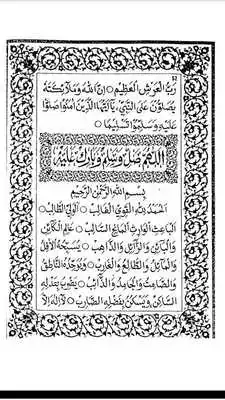 52
رَبُّ الْعَرْشِ الْعَظِيْمِ ۞ إِنَّ اللهَ وَمَلَآئِكَتَهُ
يُصَلُّوْنَ عَلَى النَّبِيِّ يَآأَيُّهَا الَّذِيْنَ اٰمَنُوْا صَلُّوْا
عَلَيْهِ وَسَلِّمُوْا تَسْلِيْمًا ۞
اَللّٰهُمَّ صَلِّ وَسَلِّمْ وَبَارِكْ عَلَيْهِ
بِسْمِ اللهِ الرَّحْمٰنِ الرَّحِيْمِ
اَلْحَمْدُ لِلّٰهِ الْقَوِيِّ الْغَالِبِ ۞ اَلْوَلِيِّ الطَّالِبِ ۞
الْبَاعِثِ الْوَارِثِ الْمَانِحِ السَّالِبِ ۞ عَالِمِ الْكَآئِنِ
وَالْبَآئِنِ وَالزَّآئِلِ وَالذَّاهِبِ ۞ يُسَبِّحُهُ الْاٰفِلُ
وَالْمَآئِلُ وَالطَّالِعُ وَالْغَارِبُ ۞ وَيُوَحِّدُهُ النَّاطِقُ
وَالصَّامِتُ وَالْجَامِدُ وَالذَّآئِبُ ۞ يَضْرِبُ بِعَدْلِهِ
السَّاكِنُ وَيَسْكُنُ بِفَضْلِهِ الضَّارِبُ ۞ لَآ إِلٰهَ إِلَّا